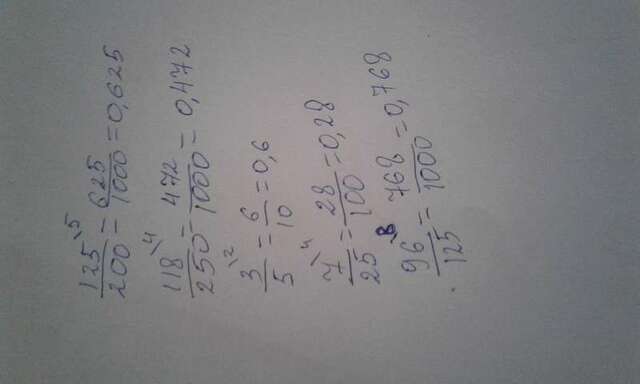 125\5/200 = 625/1000 = 0,625
118\4/250 = 472/1000 = 0,472
3\2/5 = 6/10 = 0,6
7\4/25 = 28/100 = 0,28
96\8/125 = 768/1000 = 0,768